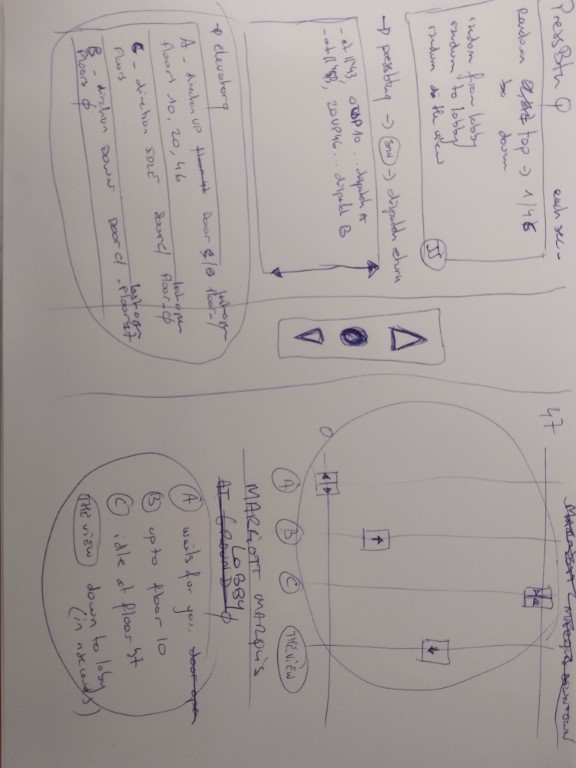 PressBtn Q each sec -
Random top → 1/46
to down
random from lobby
random to lobby
random the view
JS
→ pressbtnq → → dispatch return
- at 11:43, 0UP10 ... dispatch A
20UP46 ... dispatch B
→ elevatorq
A - direction UP Door last open
floors 10, 20, 46 floor -
C - direction IDLE Door c/ last open
Floors Floor - φ
B - direction DOWN Door c/ last open
Floors φ - Floor 47
MARRIOTT MARQUIS DOWNTOWN
47
0
A B C THE VIEW
MARRIOTT MARQUIS
LOBBY
AT GROUND φ
A waits for you, door open
B up to floor 10
C idle at floor 47
THE VIEW down to loby
(in nseconds)